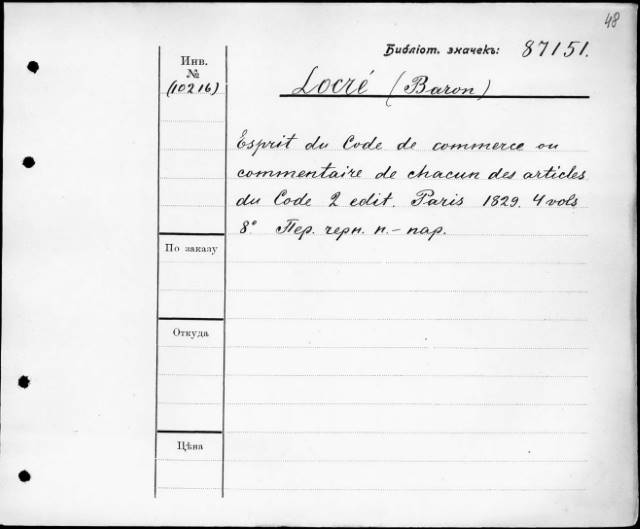 48
Библіот. значекъ: 87151.
Инв.
№
(10216)
Locré (Baron)
Esprit du Code de commerce ou
commentaire de chacun des articles
du Code 2 edit. Paris 1829. 4 vols
8° Пер. черн. п.-пар.
По заказу
Откуда
Цѣна